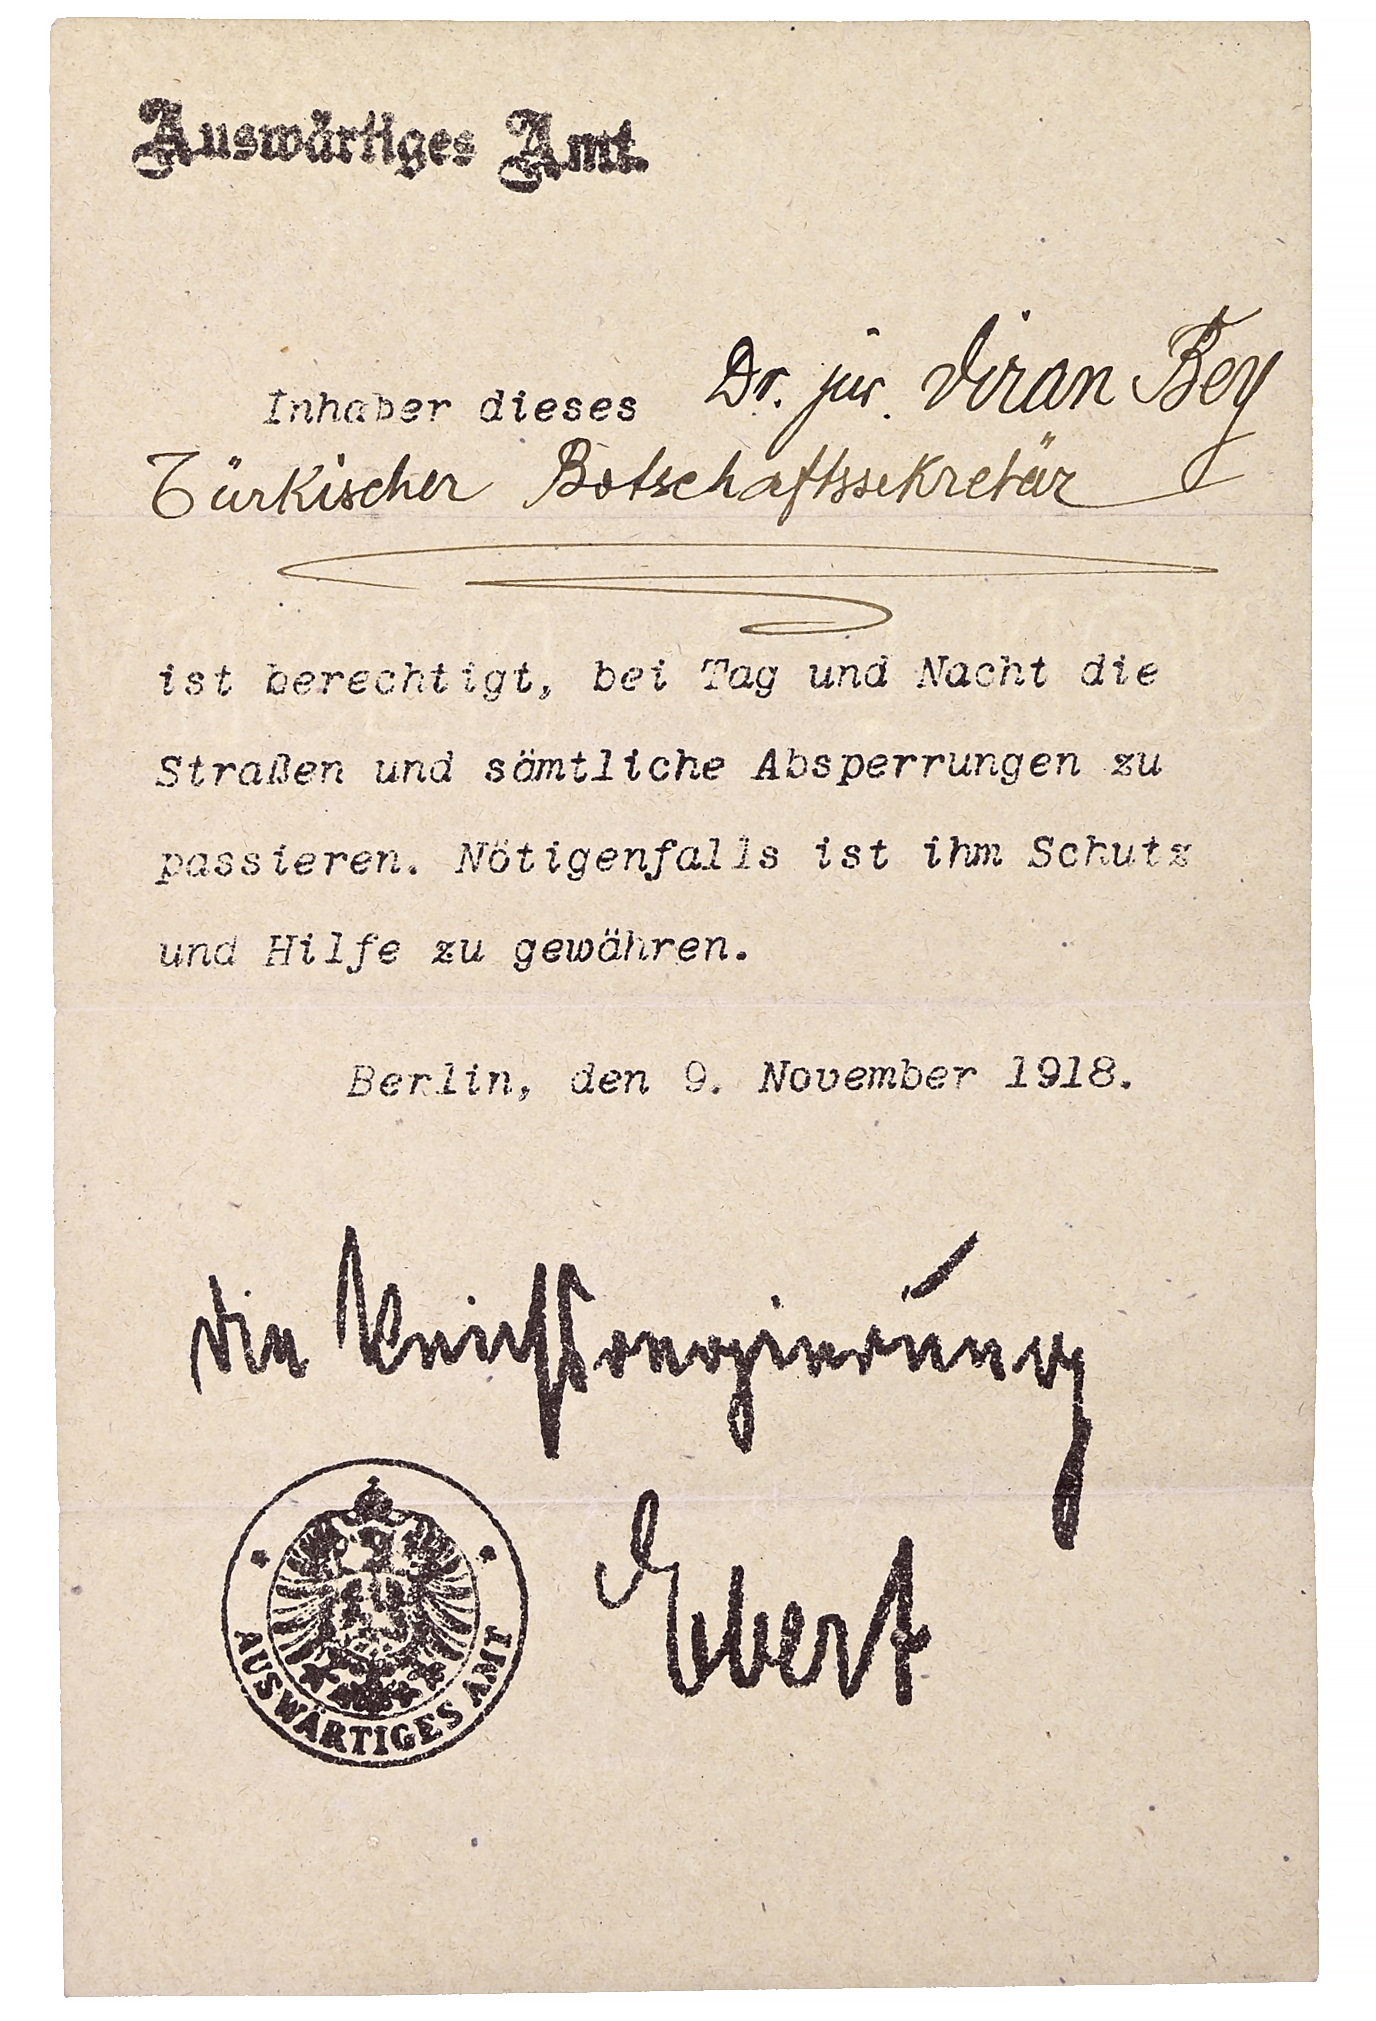 Auswärtiges Amt.
Inhaber dieses Dr. jur. Diran Bey
Türkischer Botschaftssekretär
ist berechtigt, bei Tag und Nacht die
Straßen und sämtliche Absperrungen zu
passieren. Nötigenfalls ist ihm Schutz
und Hilfe zu gewähren.
Berlin, den 9. November 1918.
Die Reichsregierung
Ebert
AUSWÄRTIGES AMT